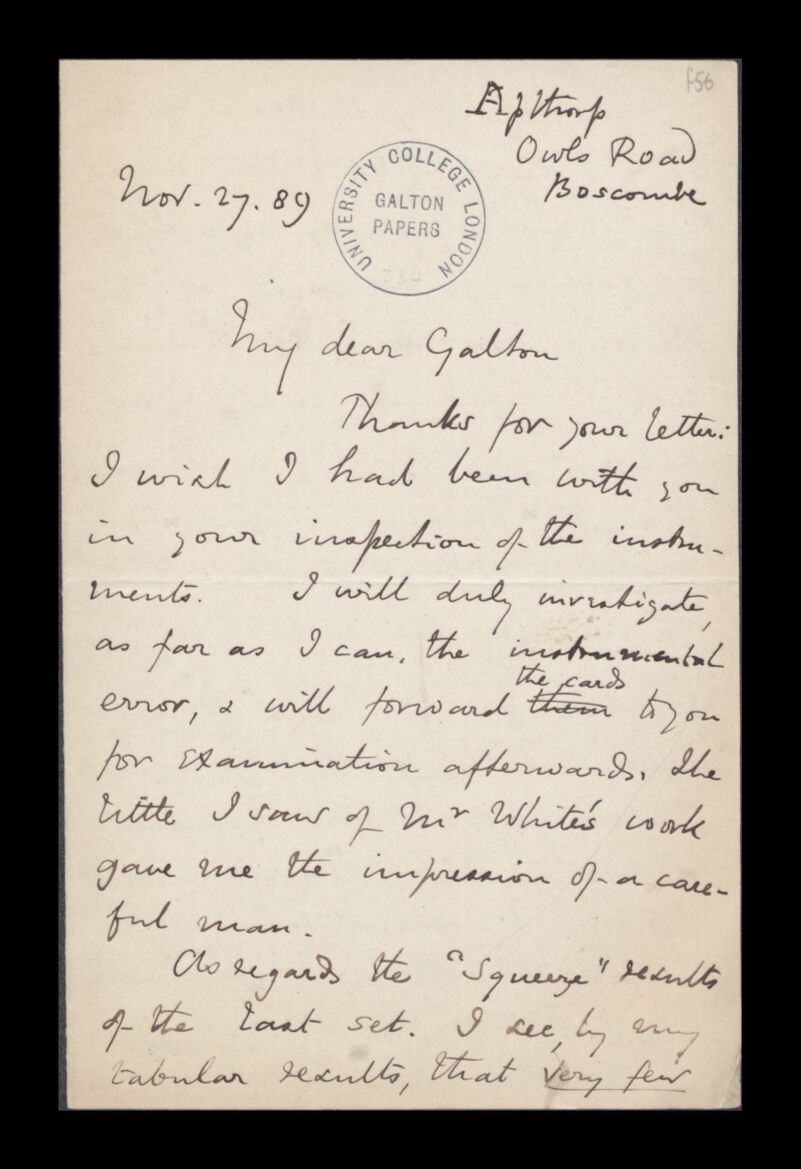 f56
Apthorp
Owls Road
Boscombe
Nov. 27. 89
UNIVERSITY COLLEGE LONDON
GALTON
PAPERS
My dear Galton
Thanks for your letter:
I wish I had been with you
in your inspection of the instru-
ments. I will duly investigate,
as far as I can, the instrumental
the cards
error, & will forward them to you
for examination afterwards. The
little I saw of Mr White's work
gave me the impression of a care-
ful man.
As regards the "Squeeze" results
of the last set. I see, by my
tabular results, that very few